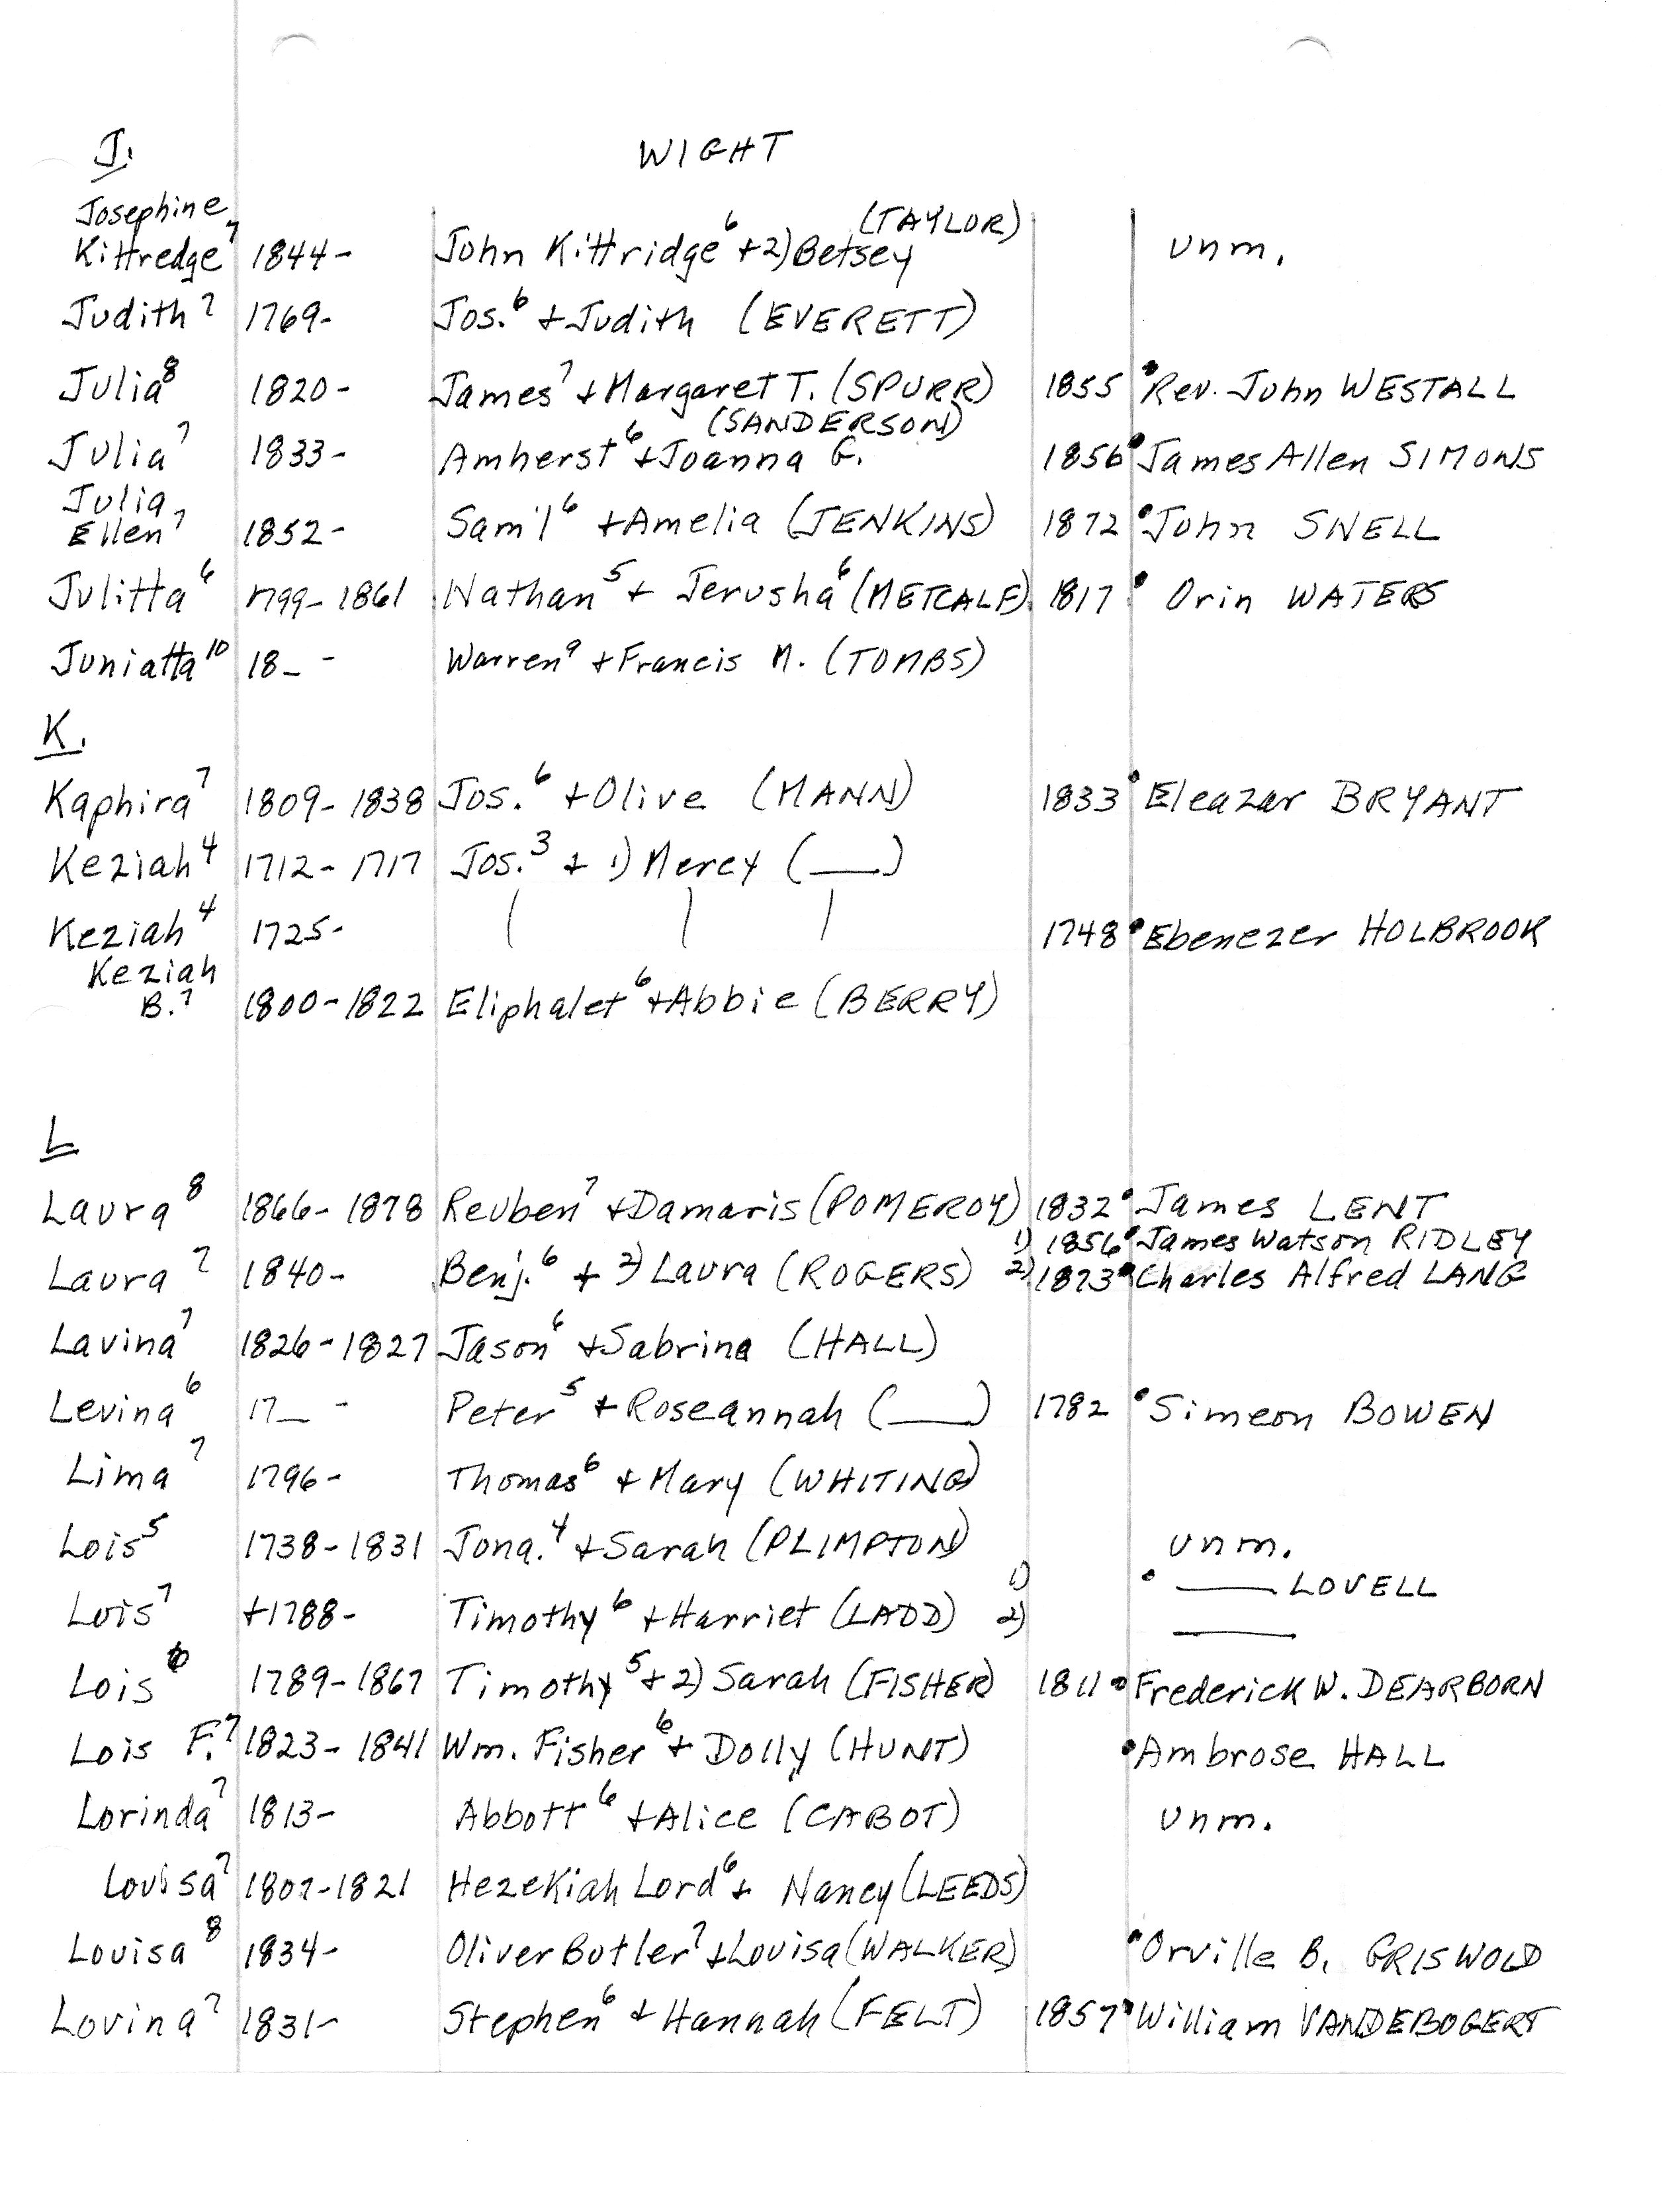 J.
WIGHT
Josephine
Kittredge⁷ 1844- John Kittridge⁶ + 2) Betsey (TAYLOR) unm.
Judith⁷ 1769- Jos.⁶ + Judith (EVERETT)
Julia⁸ 1820- James⁷ + Margaret T. (SPURR) 1855 • Rev. John WESTALL
Julia⁷ 1833- Amherst⁶ + Joanna G. (SANDERSON) 1856 • James Allen SIMONS
Julia
Ellen⁷ 1852- Sam'l⁶ + Amelia (JENKINS) 1872 • John SNELL
Julitta⁶ 1799-1861 Nathan⁵ + Jerusha⁶ (METCALF) 1817 • Orin WATERS
Juniatta¹⁰ 18_ - Warren⁹ + Francis M. (TOMBS)
K.
Kaphira⁷ 1809-1838 Jos.⁶ + Olive (MANN) 1833 • Eleazar BRYANT
Keziah⁴ 1712-1717 Jos.³ + 1) Mercy (___)
Keziah⁴ 1725- | | | 1748 • Ebenezer HOLBROOK
Keziah
B.⁷ 1800-1822 Eliphalet⁶ + Abbie (BERRY)
L
Laura⁸ 1866-1878 Reuben⁷ + Damaris (POMEROY) 1832 • James LENT
1) 1856 • James Watson RIDLEY
Laura⁷ 1840- Benj.⁶ + 2) Laura (ROGERS) 2) 1873 • Charles Alfred LANG
Lavina⁷ 1826-1827 Jason⁶ + Sabrina (HALL)
Levina⁶ 17__ - Peter⁵ + Roseannah (___) 1782 • Simeon BOWEN
Lima⁷ 1796- Thomas⁶ + Mary (WHITING)
Lois⁵ 1738-1831 Jona.⁴ + Sarah (PLIMPTON) unm.
1) • ___ LOVELL
Lois⁷ +1788- Timothy⁶ + Harriet (LADD) 2) ___
Lois⁶ 1789-1867 Timothy⁵ + 2) Sarah (FISHER) 1811 • Frederick W. DEARBORN
Lois F.⁷ 1823-1841 Wm. Fisher⁶ + Dolly (HUNT) • Ambrose HALL
Lorinda⁷ 1813- Abbott⁶ + Alice (CABOT) unm.
Louisa⁷ 1807-1821 Hezekiah Lord⁶ + Nancy (LEEDS)
Louisa⁸ 1834- Oliver Butler⁷ + Louisa (WALKER) • Orville B. GRISWOLD
Lovina⁷ 1831- Stephen⁶ + Hannah (FELT) 1857 • William VANDEBOGERT